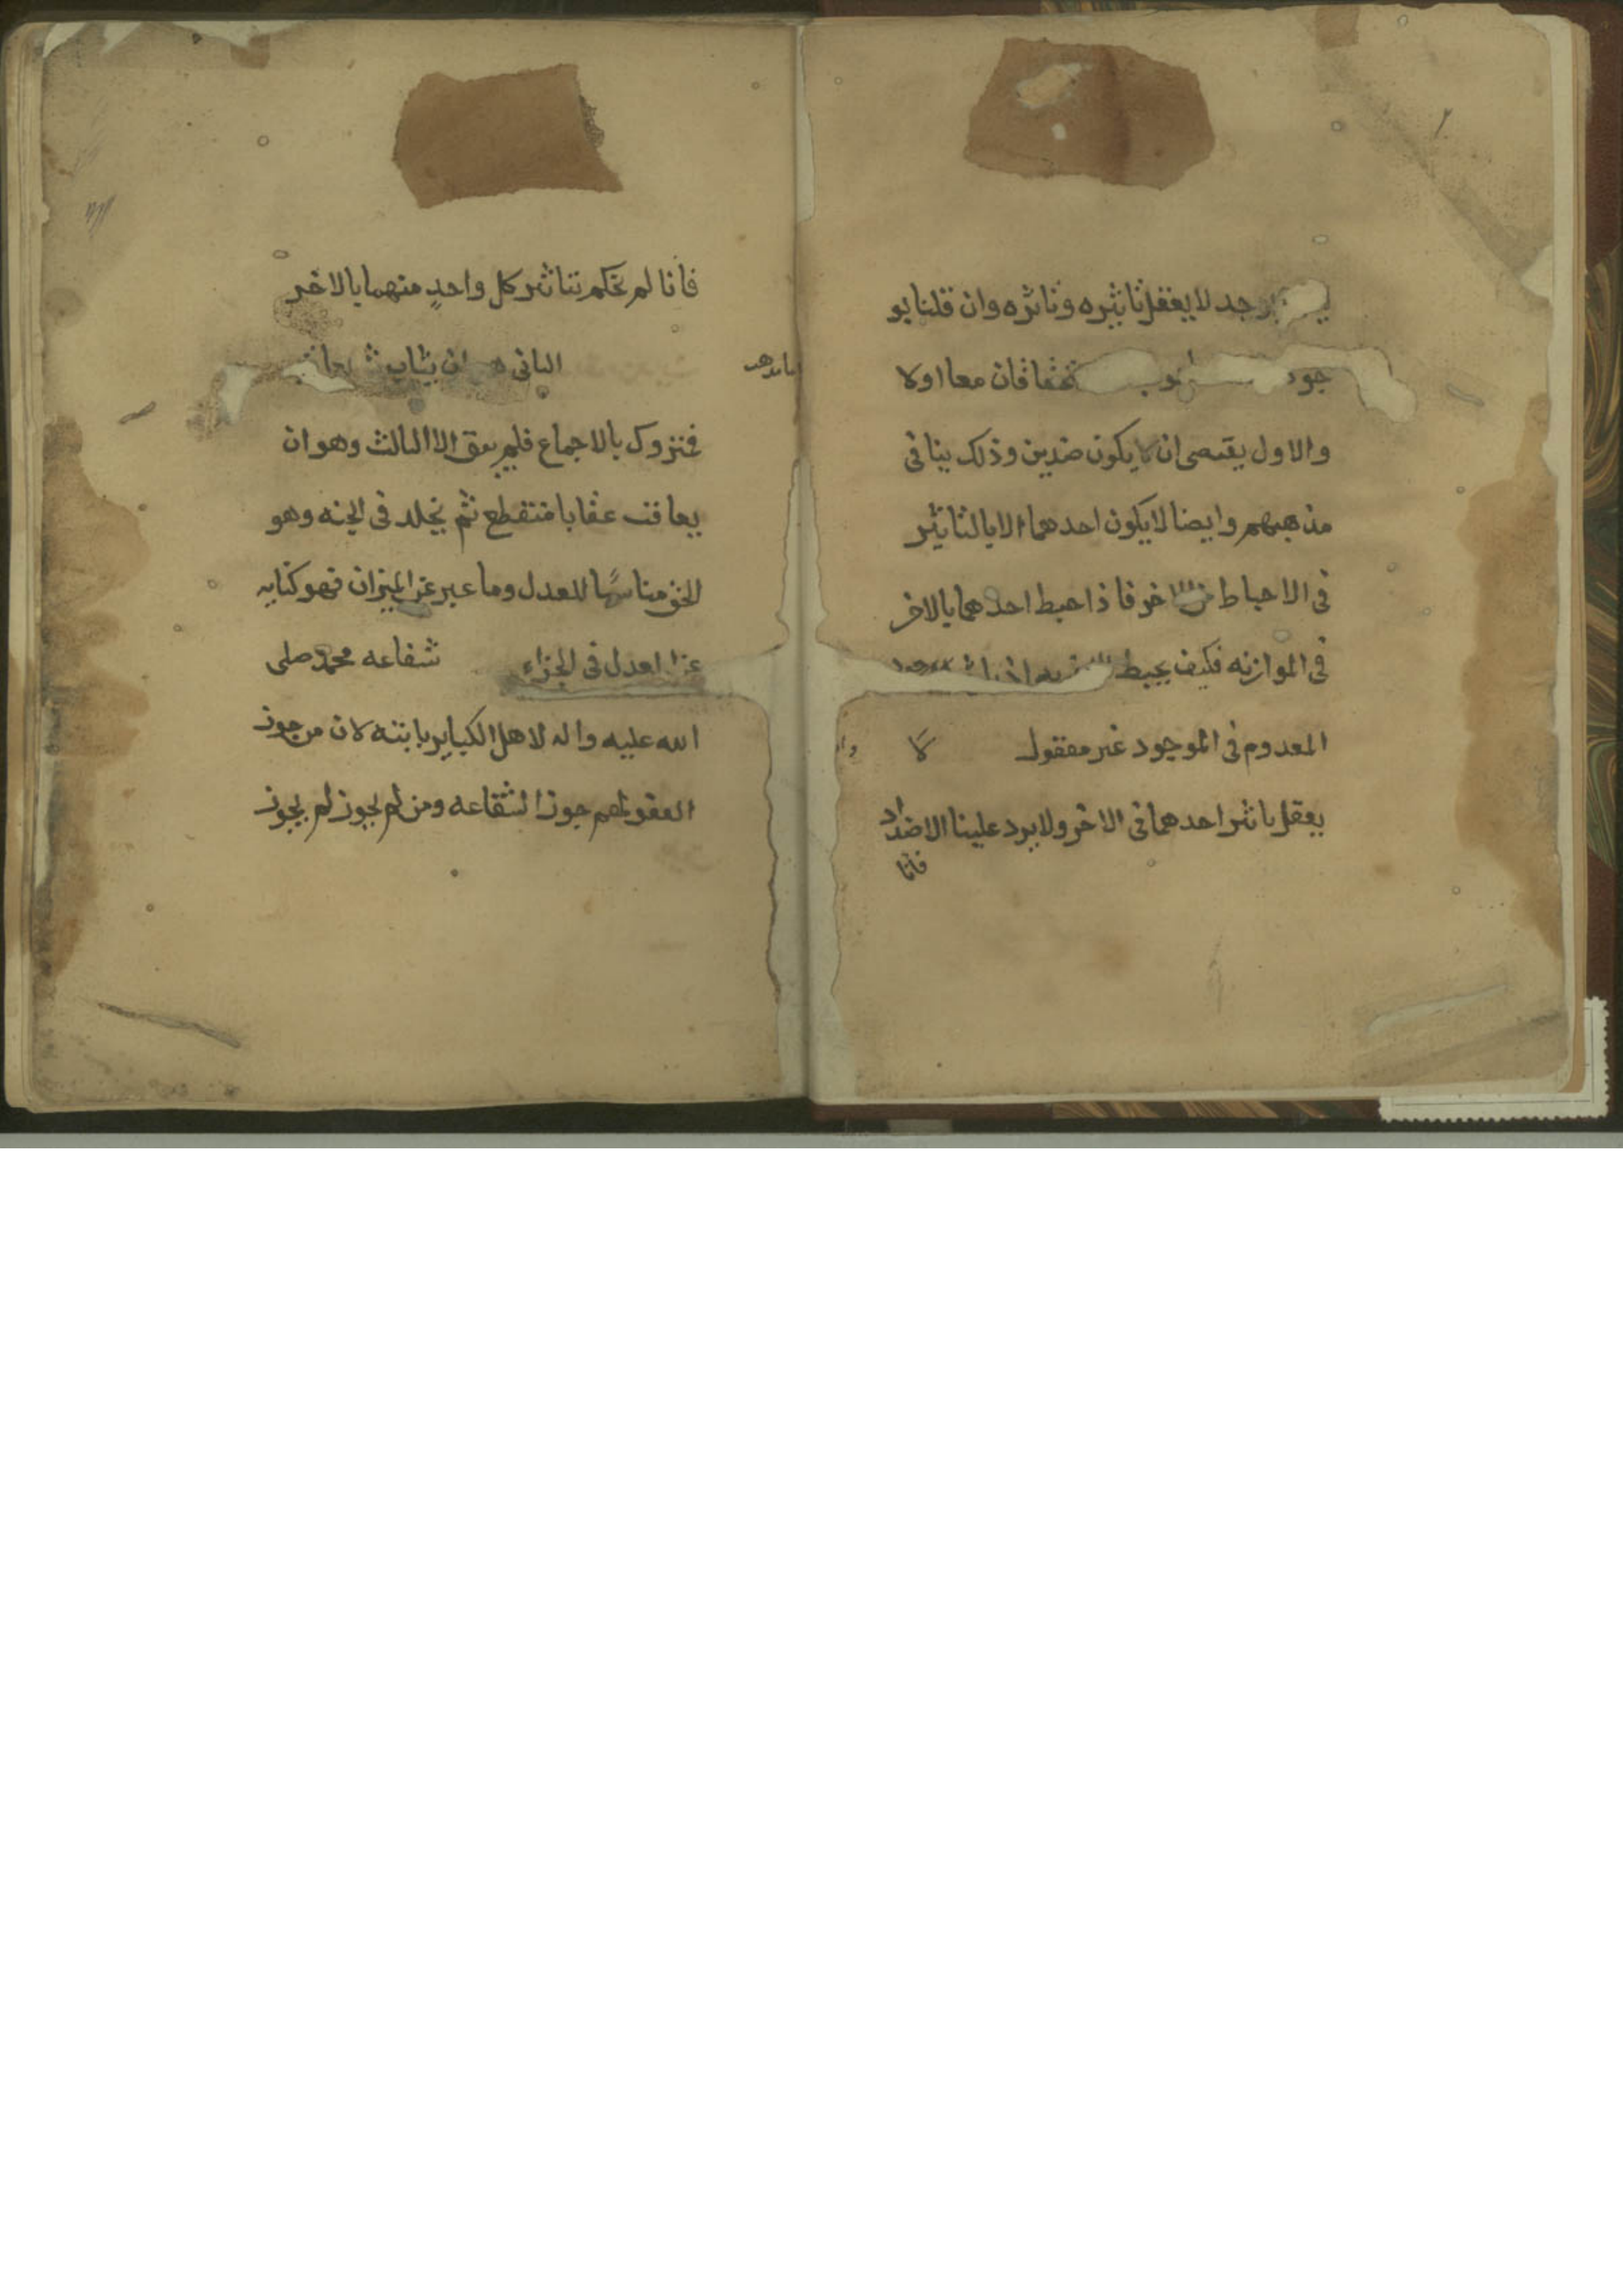 يوجد لا يعقل تاثيره وتاثره وان قلنا بو
جود تحقاقان معا اولا
والاول يقتصى ان لا يكون ضدين وذلك ينافى
مذهبهم وايضا لا يكون احدهما الا بالتاثير
فى الاحباط من الاخر فاذا حبط احدهما بالاخر
فى الموازنه فكيف يحبط
المعدوم فى الموجود غير معقول لا
يعقل تاثير احدهما فى الاخر ولا يرد علينا الاضداد
فانا
فانا لم نحكم بتاثير كل واحدٍ منهما بالاخر
الثانى ان يثاب
فمتروك بالاجماع فلم يبق الا الثالث وهو ان
يعاقب عقابا منقطع ثم يخلد فى الجنه وهو
الحق مناسبًا للعدل وما عبر عن الميزان فهو كنايه
عن العدل فى الجزاء شفاعه محمد صلى
الله عليه واله لاهل الكباير ثابتة لان من جوز
العفو لهم جوز الشفاعه ومن لم يجوز لم يجوز